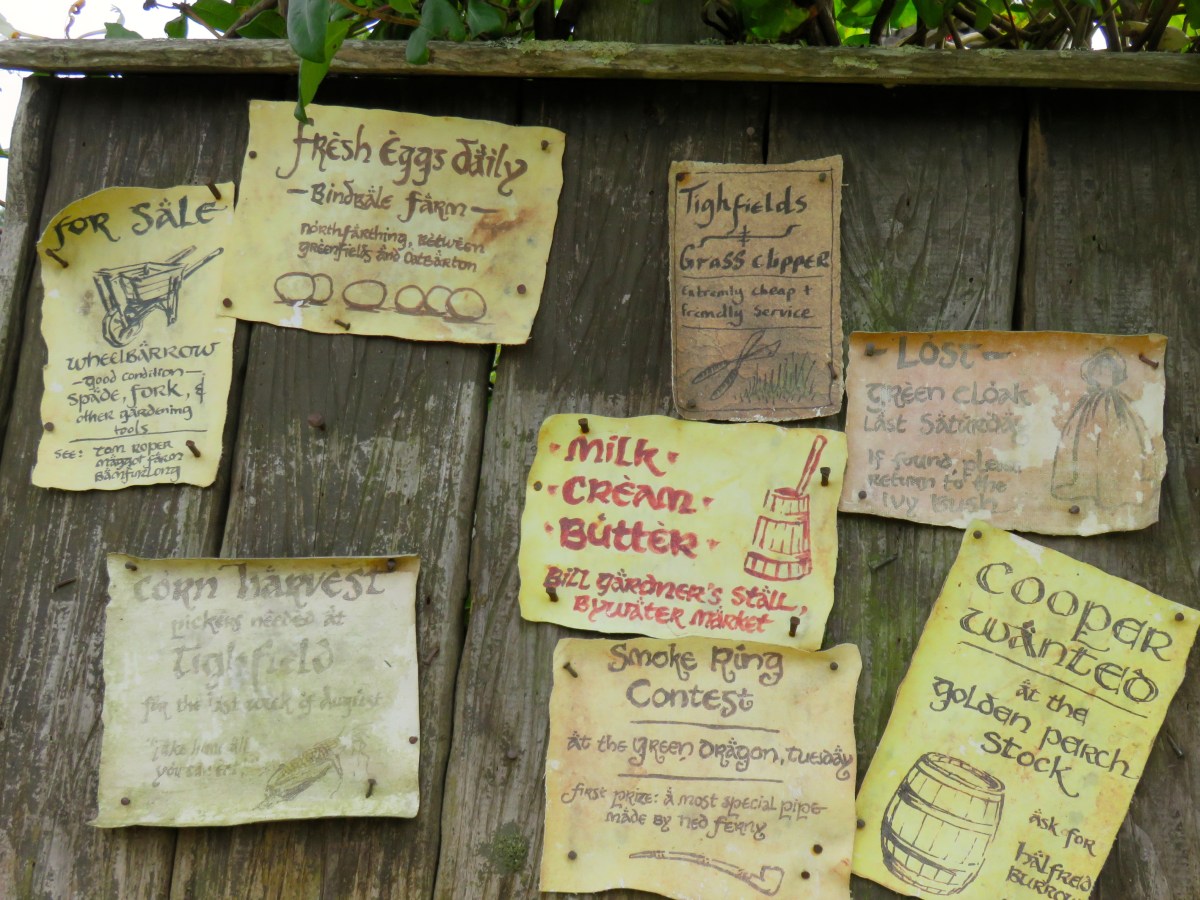 FOR SALE
WHEELBARROW
—good condition—
spade, fork, &
other gardening
tools
see: Tom Roper
Maggot Farm
Bamfurlong
Fresh Eggs Daily
—Bindbale Farm—
Northfarthing, between
Greenfields and Oatbarton
Tighfields
Grass Clipper
Extremly cheap +
friendly service
—Lost—
Green Cloak
Last Saturday
If found, please
return to the
Ivy Bush
Milk
Cream
Butter
Bill Gardner's Stall,
Bywater Market
Corn Harvest
pickers needed at
Tighfield
for the last week of August
Take home all
you
Smoke Ring
Contest
at the Green Dragon, Tuesday
first prize: a most special pipe
made by Ned Ferny
Cooper
Wanted
at the
Golden Perch
Stock
ask for
Halfred
Burrow